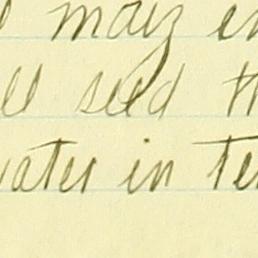 maiz en
ll seed th
water in Te